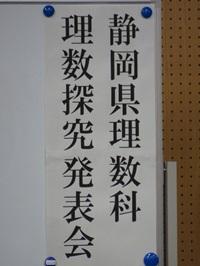 静岡県理数科
理数探究発表会